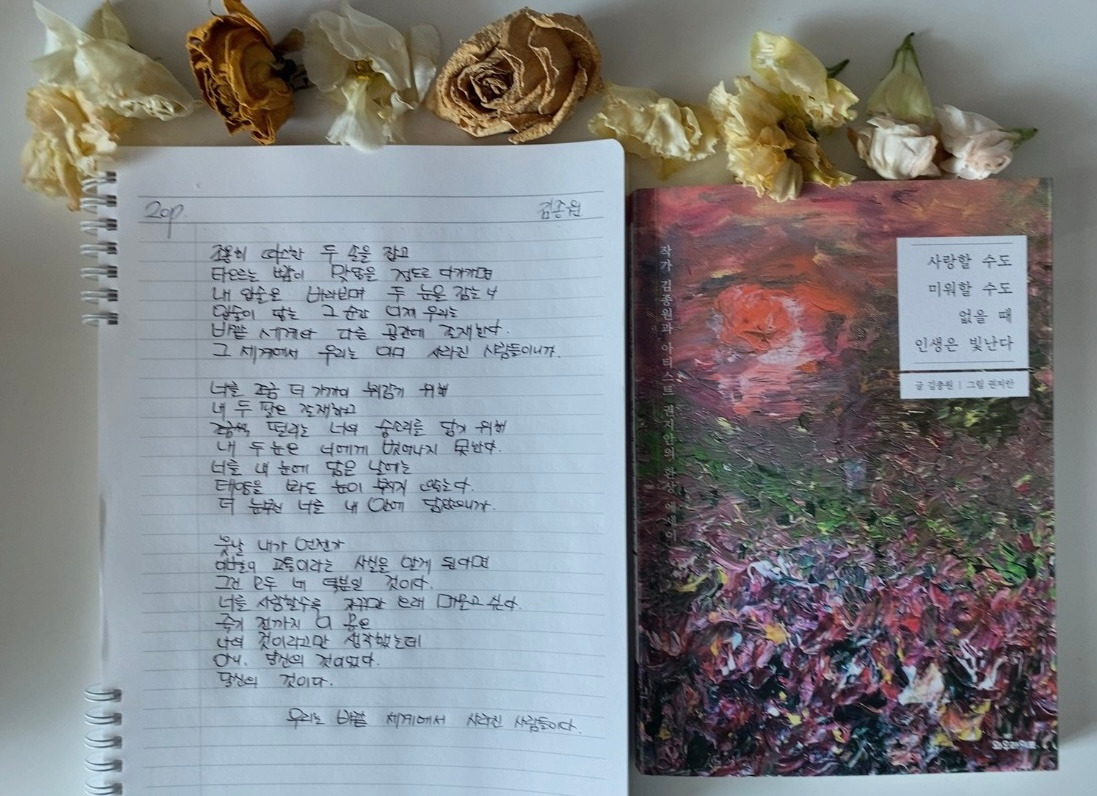 20p.
김종원
조용히 따스한 두 손을 잡고
타오르는 밤이 맞닿을 정도로 다가가면
내 입술은 바라보며 두 눈을 감는 너
입술이 닿는 그 순간 이제 우리는
바깥 세계와 다른 공간에 존재한다.
그 세계에서 우리는 이미 사라진 사람들이니까.
너를 조금 더 가까이 휘감기 위해
내 두 팔은 존재하고
조금씩 떨리는 너의 숨소리를 담기 위해
내 두 눈은 너에게 벗어나지 못한다.
너를 내 눈에 담은 날에는
태양을 봐도 눈이 부시지 않는다.
더 눈부신 너를 내 안에 담았으니까.
훗날 내가 언젠가
이별이 고통이라는 사실을 알게 된다면
그건 모두 네 덕분일 것이다.
너를 사랑할수록 자꾸만 오래 머물고 싶다.
죽기 전까지 이 몸은
나의 것이라고만 생각했는데
아니, 당신의 것이었다.
당신의 것이다.
우리는 바깥 세계에서 사라진 사람들이다.
작가 김종원과 아티스트 권지안의 한상 에세이
사랑할 수도
미워할 수도
없을 때
인생은 빛난다
글 김종원 | 그림 권지안